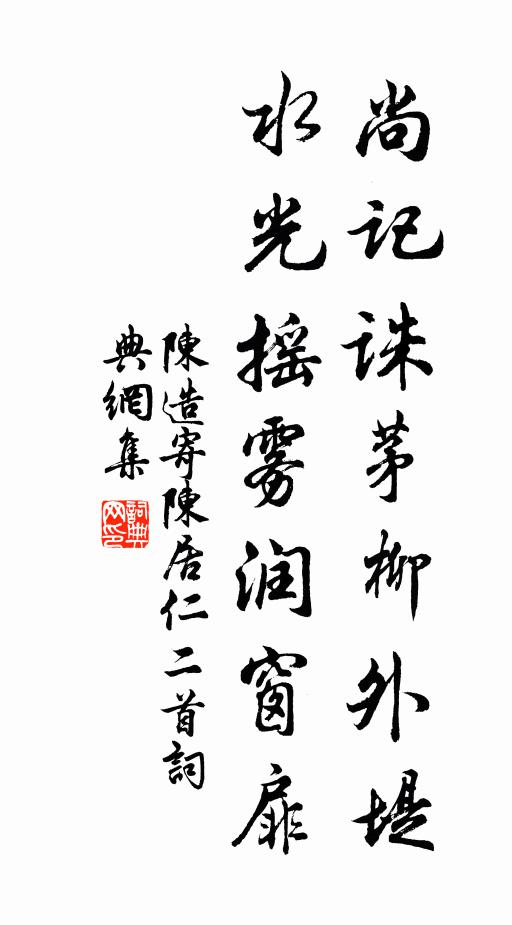 尚记诛茅柳外堤
水光摇雾润窗扉
陳造寄陳居仁二首詞
典網集
詞典网印